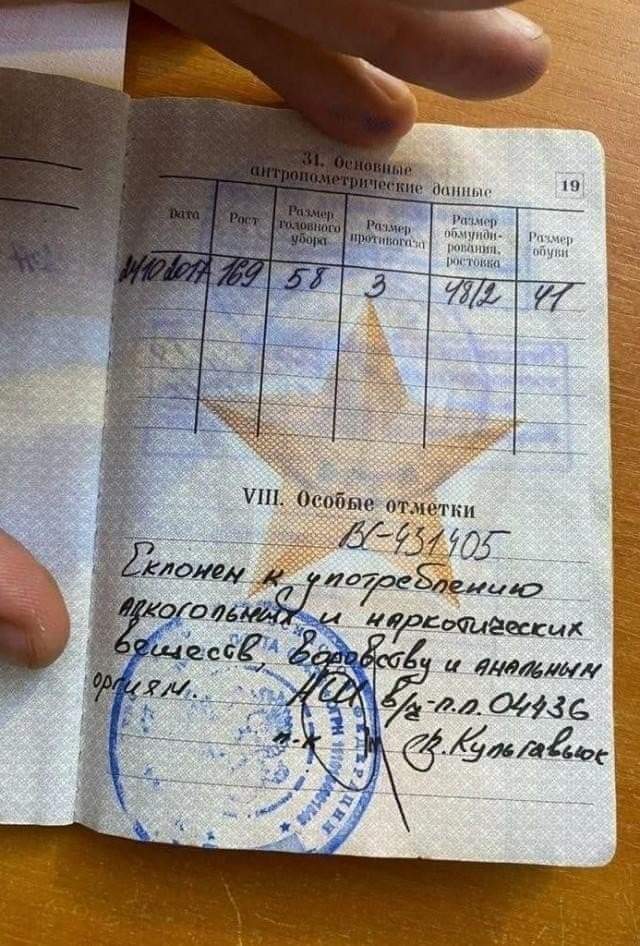 19
31. Основные
антропометрические данные
Дата Рост Размер головного убора Размер противогаза Размер обмунди- рования, ростовка Размер обуви
24102017 169 58 3 48/2 41
VIII. Особые отметки
ВС-431405
Склонен к употреблению
алкогольных и наркотических
веществ, воровству и анальным
оргиям. НШ в/ч-п.п. 04436
п-к Кульгавьюк